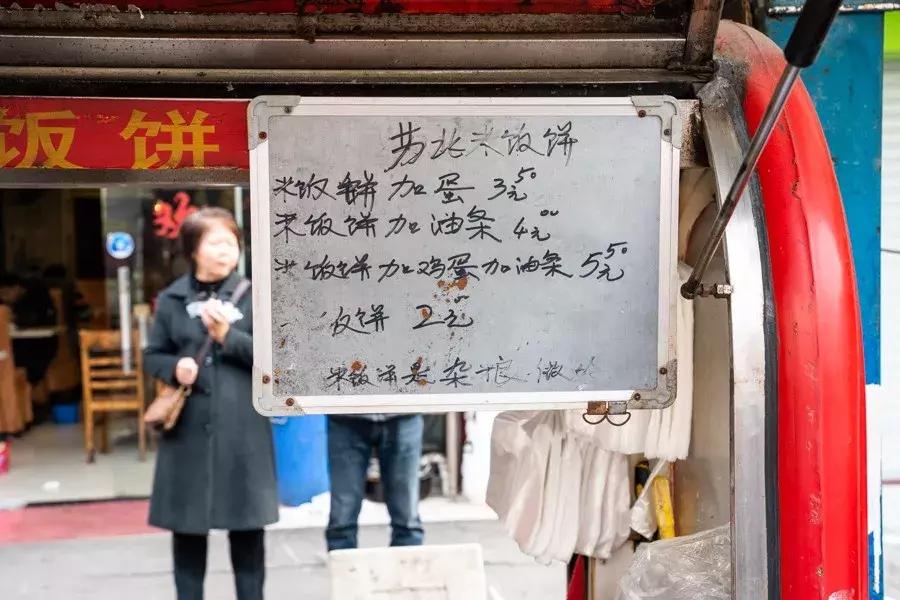 饭饼
苏北米饭饼
米饭饼加蛋 3元50
米饭饼加油条 4元00
米饭饼加鸡蛋加油条 5元50
饭饼 2元
米饭饼是杂粮